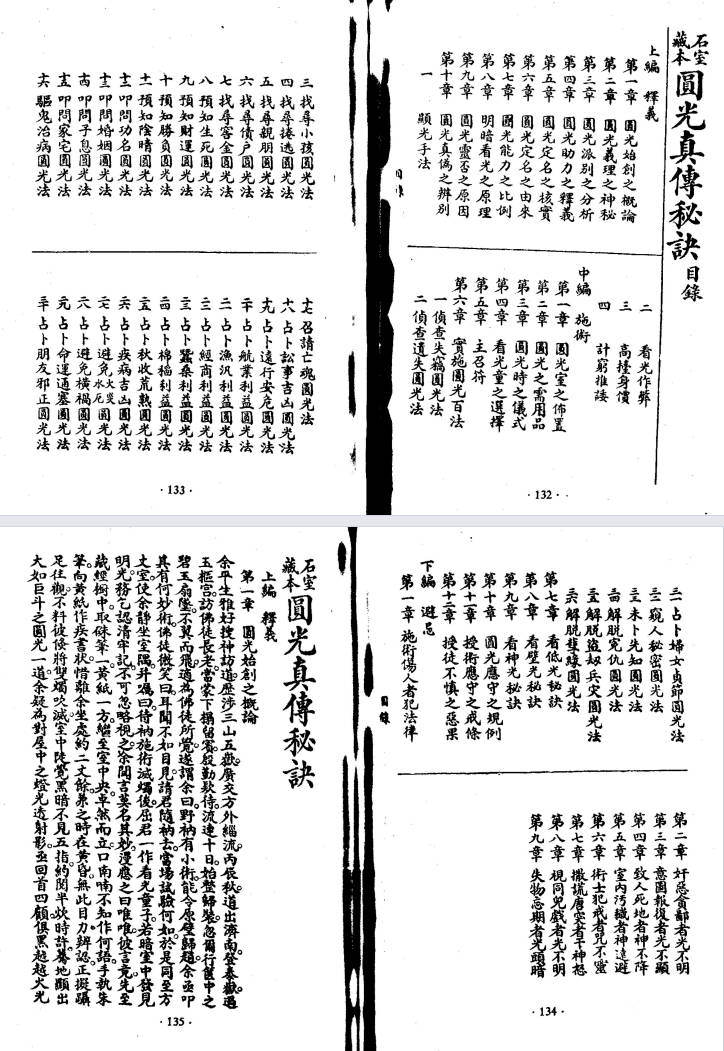 石室藏本圓光真傳秘訣目錄
上編　釋義
第一章　圓光始創之概論
第二章　圓光義理之神秘
第三章　圓光派別之分析
第四章　圓光助力之釋義
第五章　圓光定名之核實
第六章　圓光定名之由來
第七章　圓光能力之比例
第八章　明暗看光之原理
第九章　圓光靈否之原因
第十章　圓光真偽之辨別
一　顯光手法
二　看光作弊
三　高擡身價
四　計窮推諉
中編　施術
第一章　圓光室之佈置
第二章　圓光之需用品
第三章　圓光時之儀式
第四章　看光童之選擇
第五章　主召符
第六章　實施圓光百法
一　偵查失竊圓光法
二　偵查遺失圓光法
·132·
目錄
三　找尋小孩圓光法
四　找尋捲逃圓光法
五　找尋親朋圓光法
六　找尋債户圓光法
七　找尋窖金圓光法
八　預知生死圓光法
九　預知財運圓光法
十　預知勝負圓光法
十一　預知陰晴圓光法
十二　叩問功名圓光法
十三　叩問婚姻圓光法
十四　叩問子息圓光法
十五　叩問家宅圓光法
十六　驅鬼治病圓光法
十七　召請亡魂圓光法
十八　占卜訟事吉凶圓光法
十九　占卜遠行安危圓光法
二十　占卜航業利益圓光法
二一　占卜漁汛利益圓光法
二二　占卜經商利益圓光法
二三　占卜蠶桑利益圓光法
二四　占卜棉稻利益圓光法
二五　占卜秋收荒熟圓光法
二六　占卜疾病吉凶圓光法
二七　占卜避免水火災死圓光法
二八　占卜避免橫禍圓光法
二九　占卜命運通塞圓光法
三十　占卜朋友邪正圓光法
·133·
三一　占卜婦女貞節圓光法
三二　窺人秘密圓光法
三三　未卜先知圓光法
三四　解脫冤仇圓光法
三五　解脫盜劫兵灾圓光法
三六　解脫孽緣圓光法
第七章　看低光秘訣
第八章　看壁光秘訣
第九章　看神光秘訣
第十章　圓光應守之規例
第十一章　授術應守之戒條
第十二章　授徒不慎之惡果
下編　避忌
第一章　施術傷人者犯法律
第二章　奸惡貪鄙者光不明
第三章　意圖報復者光不顯
第四章　致人死地者神不降
第五章　室內污穢者神遠避
第六章　術士犯戒者咒不靈
第七章　撒謊唐突者干神怒
第八章　視同兒戲者光不明
第九章　失物忘期者光頭暗
·134·
目錄
石室藏本圓光真傳秘訣
上編　釋義
第一章　圓光始創之概論
余平生雅好搜神訪道。歷涉三山五嶽。廣交方外緇流。丙辰秋。道出濟南。登泰嶽。過
玉樞宫。訪佛徒長老。當蒙下榻留賓。殷勤欵待。流連十日。始整歸裝。忽爾行篋中之
碧玉扇墜。不翼而飛。適為佛徒所覺。遂謂余曰。野衲有小術。能令原璧歸趙。余亟叩
其有何妙術。佛徒微笑曰。耳聞不如目見。請君隨衲去。當場試驗何如。於是同至方
丈室。使余靜坐室隅。并囑曰。待衲施術滅燭後。屈君一作看光童子。若暗室中發見
明光。務乞認清牢記。不可忽略視之。余聞言莫名其妙。漫應之曰唯唯。彼言竟。先至
藏經櫥中。取硃筆一。黃紙一方。繼至室中央。卓然而立。口南喃不知作何語。手執朱
筆。向黃紙作疾書狀。惜離余坐處約二丈餘。兼之時在黃昏。無此目力辨認。正擬躡
足往觀。不料彼倏將雙燭吹滅。室中陡覺黑暗。不見五指。約閱半炊時許。驀地顯出
大如巨斗之圓光一道。余疑為對屋中之燈光透射影。亟回首四顧。俱黑越越。火光
·135·